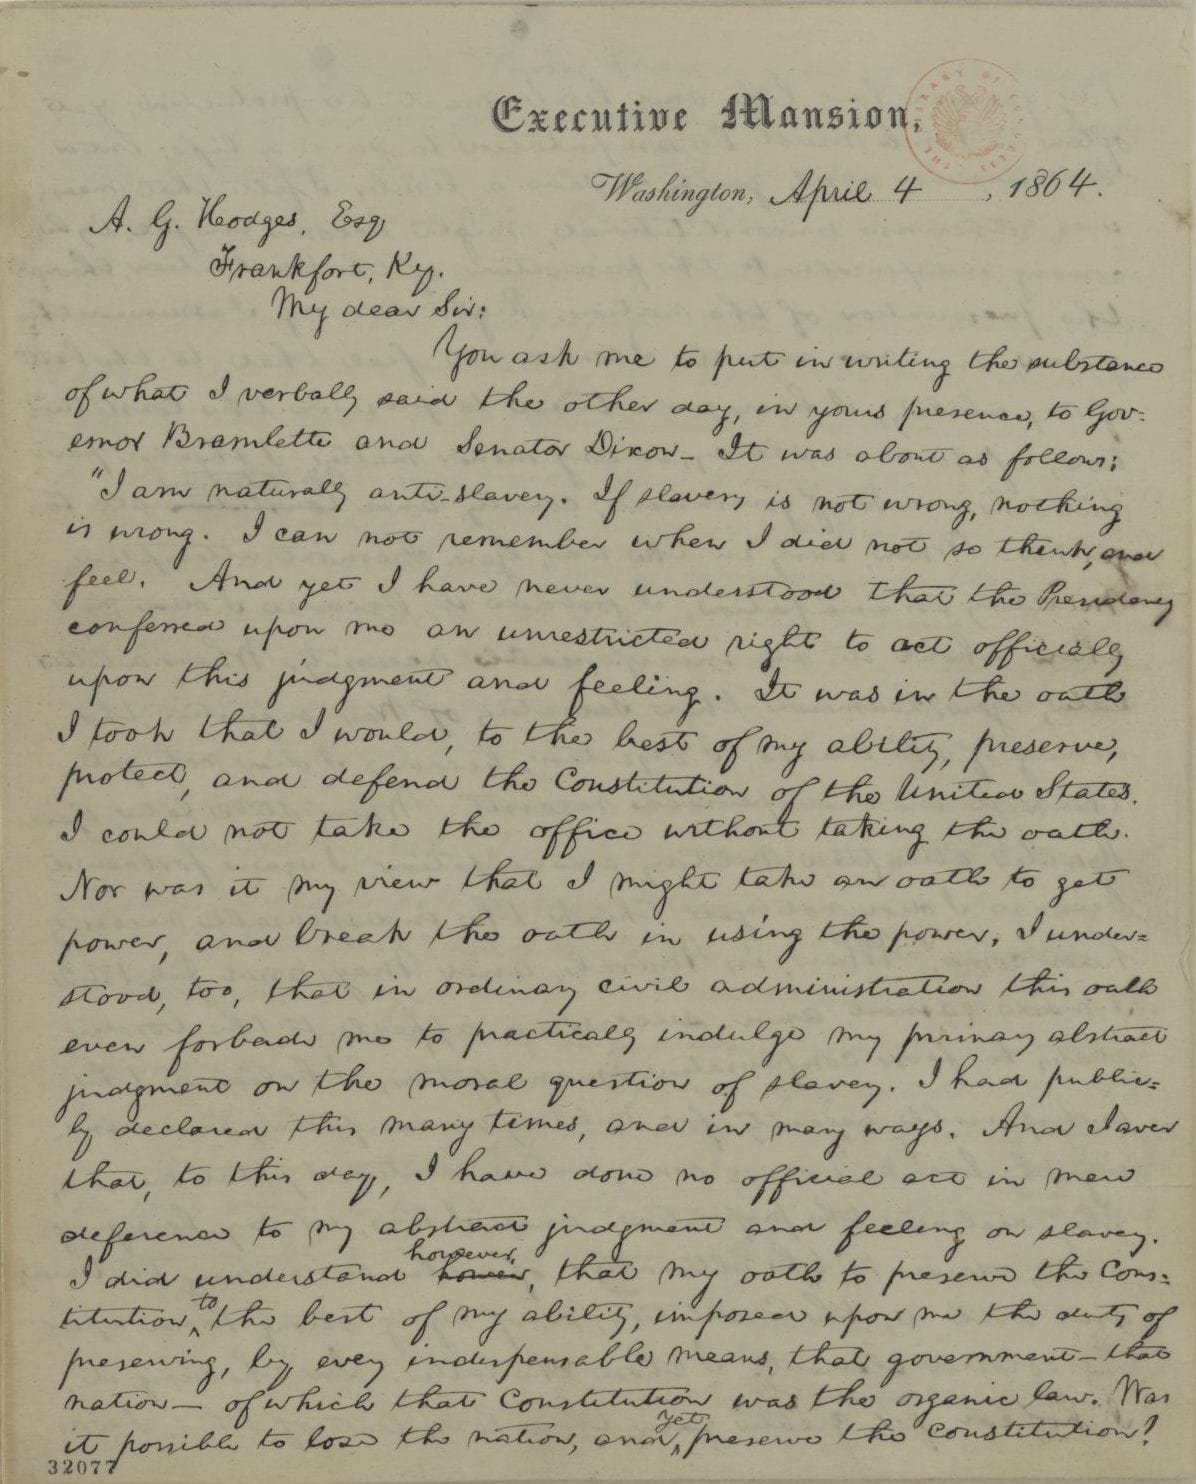 Executive Mansion,
Washington, April 4, 1864.
A. G. Hodges, Esq
Frankfort, Ky.
My dear Sir:
You ask me to put in writing the substance
of what I verbally said the other day, in your presence, to Gov-
ernor Bramlette and Senator Dixon— It was about as follows:
"I am naturally anti-slavery. If slavery is not wrong, nothing
is wrong. I can not remember when I did not so think, and
feel. And yet I have never understood that the Presidency
conferred upon me an unrestricted right to act officially
upon this judgment and feeling. It was in the oath
I took that I would, to the best of my ability, preserve,
protect, and defend the Constitution of the United States.
I could not take the office without taking the oath.
Nor was it my view that I might take an oath to get
power, and break the oath in using the power. I under-
stood, too, that in ordinary civil administration this oath
even forbade me to practically indulge my primary abstract
judgment on the moral question of slavery. I had public-
ly declared this many times, and in many ways. And I aver
that, to this day, I have done no official act in mere
deference to my abstract judgment and feeling on slavery.
I did understand however, that my oath to preserve the Cons-
titution, to the best of my ability, imposed upon me the duty of
preserving, by every indispensable means, that government— that
nation— of which that Constitution was the organic law. Was
it possible to lose the nation, and yet, preserve the Constitution?
32077